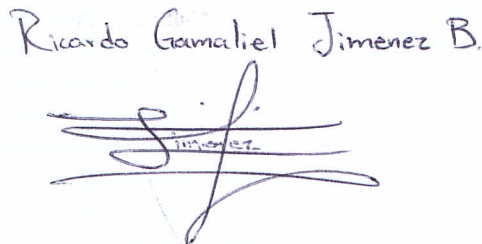 Ricardo Gamaliel Jimenez B.
Jimenez